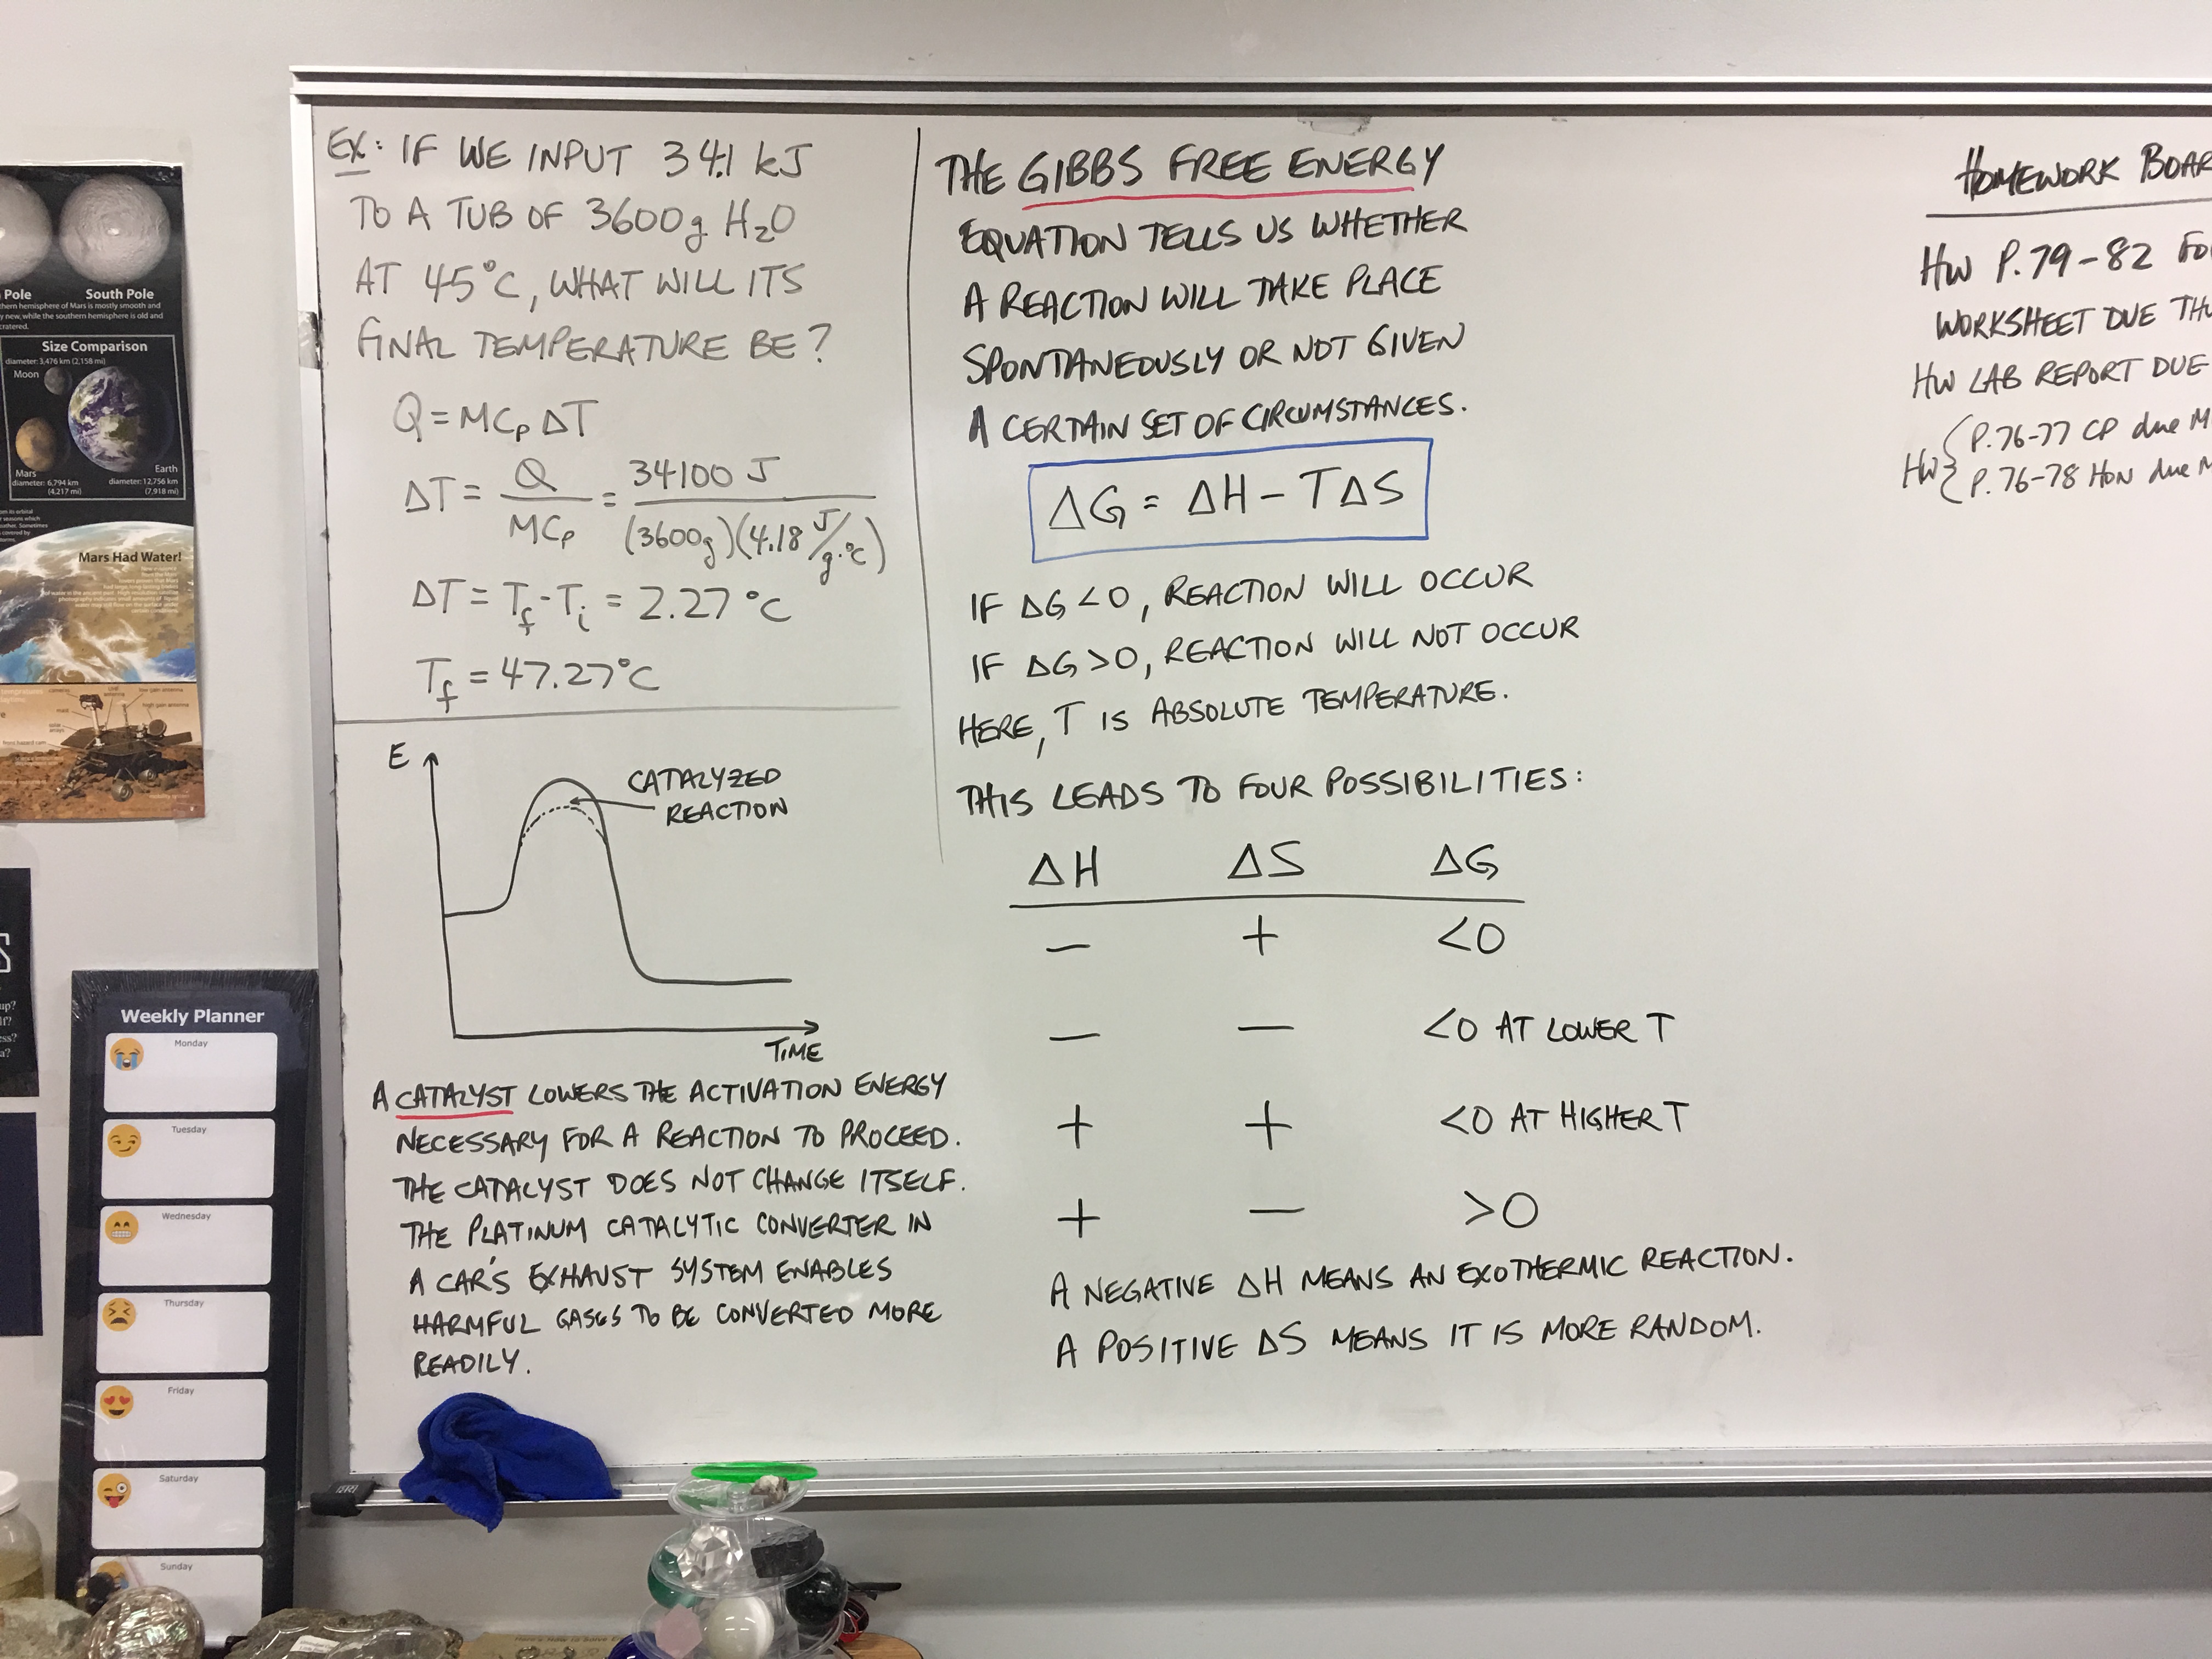 EX: IF WE INPUT 34.1 kJ
TO A TUB OF 3600g H₂O
AT 45°C, WHAT WILL ITS
FINAL TEMPERATURE BE?
Q = MCₚ ΔT
ΔT = Q/MCₚ = 34100 J/(3600g)(4.18 J/g·°C)
ΔT = T_f - T_i = 2.27 °C
T_f = 47.27°C
E
CATALYZED
REACTION
TIME
A CATALYST LOWERS THE ACTIVATION ENERGY
NECESSARY FOR A REACTION TO PROCEED.
THE CATALYST DOES NOT CHANGE ITSELF.
THE PLATINUM CATALYTIC CONVERTER IN
A CAR'S EXHAUST SYSTEM ENABLES
HARMFUL GASES TO BE CONVERTED MORE
READILY.
THE GIBBS FREE ENERGY
EQUATION TELLS US WHETHER
A REACTION WILL TAKE PLACE
SPONTANEOUSLY OR NOT GIVEN
A CERTAIN SET OF CIRCUMSTANCES.
ΔG = ΔH - TΔS
IF ΔG <0, REACTION WILL OCCUR
IF ΔG >0, REACTION WILL NOT OCCUR
HERE, T IS ABSOLUTE TEMPERATURE.
THIS LEADS TO FOUR POSSIBILITIES:
ΔH ΔS ΔG
- + <0
- - <0 AT LOWER T
+ + <0 AT HIGHER T
+ - >0
A NEGATIVE ΔH MEANS AN EXOTHERMIC REACTION.
A POSITIVE ΔS MEANS IT IS MORE RANDOM.
HOMEWORK BOAR
HW P. 79-82 FO
WORKSHEET DUE THU
HW LAB REPORT DUE
HW { P. 76-77 CP due M
P. 76-78 HON due M
Pole South Pole
Size Comparison
diameter: 3,476 km (2,158 mi)
Moon
Mars
diameter: 6,794 km
(4,217 mi)
Earth
diameter: 12,756 km
(7,918 mi)
Mars Had Water!
Weekly Planner
Monday
Tuesday
Wednesday
Thursday
Friday
Saturday
Sunday